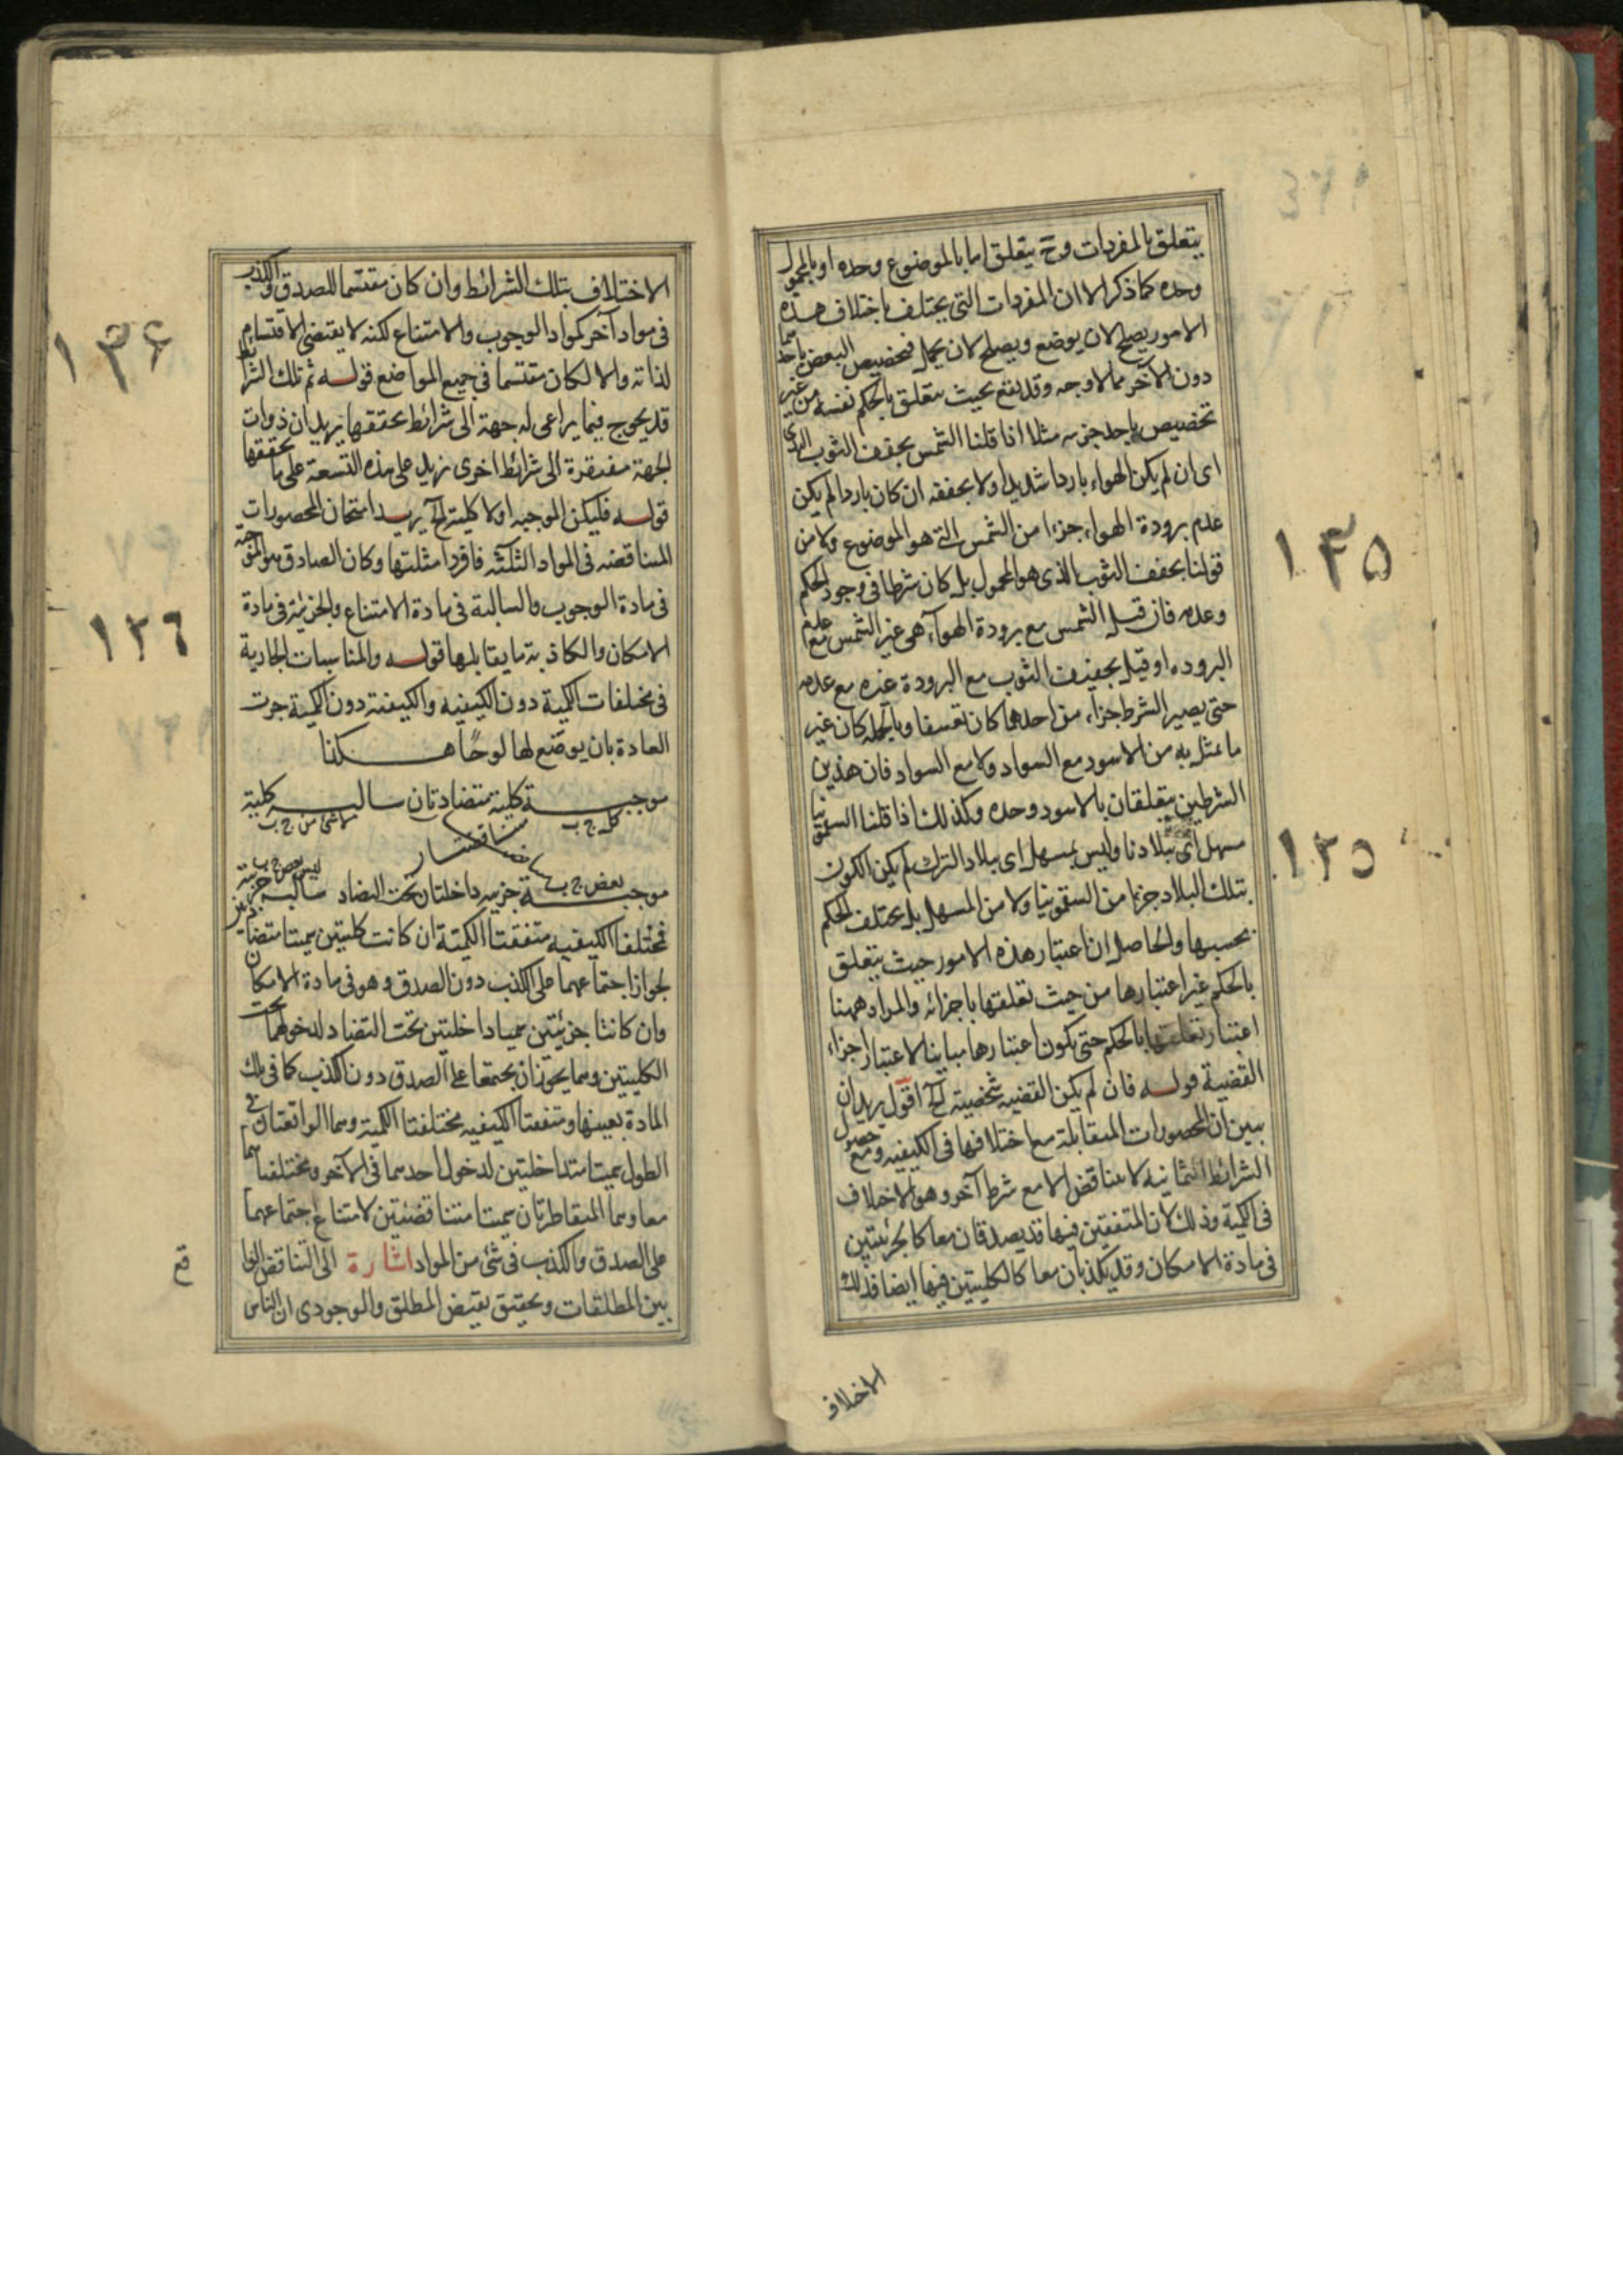 يتعلق بالمفردات وح يتعلق اما بالموضوع وحده او بالمحمول
وحده كما ذكر الا ان المفردات التي يختلف باختلاف هذه
الامور يصلح لان يوضع ويصلح لان يحمل فتخصيص البعض باحدهما
دون الآخر مما لا وجه وقد يقع بحيث يتعلق بالحكم نفسه من غير
تخصيص باحد جزئيه مثلا اذا قلنا الشمس يجفف الثوب الندى
اى ان لم يكن الهواء باردا شديدا ولا يجففه ان كان باردا لم يكن
عدم برودة الهواء جزءا من الشمس التي هو الموضوع ولا من
قولنا يجفف الثوب الذى هو المحمول بل كان شرطا في وجود الحكم
وعدمه فان قيل الشمس مع برودة الهواء هي غير الشمس مع عدم
البروده او قيل يجفيف الثوب مع البرودة غيره مع عدمه
حتى يصير الشرط جزء من احدهما كان تعسفا وبالجمله كان غير
ما تمثل به من الاسود مع السواد ولا مع السواد فان هذين
الشرطين يتعلقان بالاسود وحده وكذلك اذا قلنا السقمونيا
مسهل اى ببلادنا وليس بمسهل اى ببلاد الترك لم يكن الكون
بتلك البلاد جزءا من السقمونيا ولا من المسهل بل يختلف الحكم
بحسبها والحاصل ان اعتبار هذه الامور حيث يتعلق
بالحكم غير اعتبارها من حيث تعلقها باجزائه والمراد ههنا
اعتبار تعلقها بالحكم حتى يكون اعتبارها مباينا لاعتبار اجزاء
القضية قوله فان لم يكن القضيه شخصية الخ اقول يريد ان
يبين ان المحصورات المتقابلة مع اختلافها فى الكيفيه ومع حصول
الشرائط الثمانيه لا يتناقض الا مع شرط آخر وهو الاختلاف
فى الكمية وذلك لان المتفقين فيها قد يصدقان معا كالجزئيتين
فى مادة الامكان وقد يكذبان معا كالكليتين فيها ايضا فذلك
الاختلاف
١٣٥
١٣٥
الاختلاف بتلك الشرائط وان كان مقتسما للصدق والكذب
فى مواد آخر كمواد الوجوب والامتناع لكنه لا يقتضى الاقتسام
لذاته والا لكان مقتسما في جميع المواضع قوله ثم تلك الشرائط
قد يحوج فيما يراعى له جهة الى شرائط تحققها يريد ان ذوات
الجهة مفتقرة الى شرائط اخرى تزيد على هذه التسعة على ما تحققها
قوله فليكن الموجبه اولا كلية الخ يريد امتحان المحصورات
المتناقضه في المواد الثلثه فافرد امثلتها وكان الصادق هو الموجبه
فى مادة الوجوب والسالبة فى مادة الامتناع والجزئية فى مادة
الامكان والكاذبة ما يقابلها قوله والمناسبات الجارية
فى مختلفات الكمية دون الكيفيه والكيفية دون الكمية جرت
العادة بان يوضع لها لوحًا هكذا
موجبة كلية متضادتان سالبه كلية
كل ج ب لا شئ من ج ب
متناقضتان
بعض ج ب ليس بعض ج ب
موجبة جزئيه داخلتان تحت التضاد سالبه جزئية
فمختلفا الكيفيه متفقتا الكمية ان كانت كليتين سميتا متضادتين
لجواز اجتماعهما على الكذب دون الصدق وهو فى مادة الامكان
وان كانتا جزئيتين سميا داخليتين تحت التضاد لدخولهما تحت
الكليتين وهما يجوز ان يجتمعا على الصدق دون الكذب كما في تلك
المادة بعينها ومتفقتا الكيفيه مختلفتا الكمية وهما الواقعتان في
الطول سميتا متداخلتين لدخول احدهما في الآخر ومختلفتاهما
معا وهما المتقاطرتان سميتا متناقضتين لامتناع اجتماعهما
على الصدق والكذب فى شئ من المواد اشارة الى التناقض الواقع
بين المطلقات وتحقيق نقيض المطلق والوجودى ان الناس
١٣۶
١٣٦